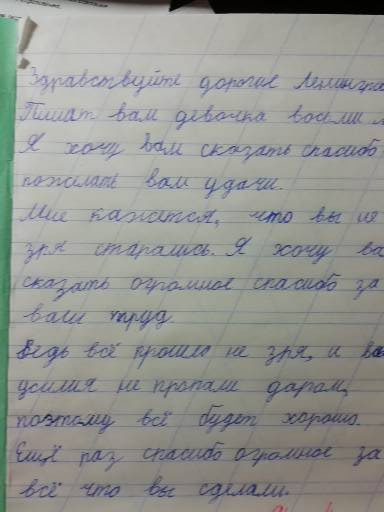 Здравствуйте дорогие Ленингра
Пишат вам девочка восьми
Я хочу вам сказать спасибо
пожелать вам удачи.
Мне кажется, что вы не
зря старались. Я хочу ва
сказать огромное спасибо за
ваш труд.
Ведь всё прошло не зря, и ва
усилия не пропали даром,
поэтому всё будет хорошо.
Ещё раз спасибо огромное за
всё что вы сделали.